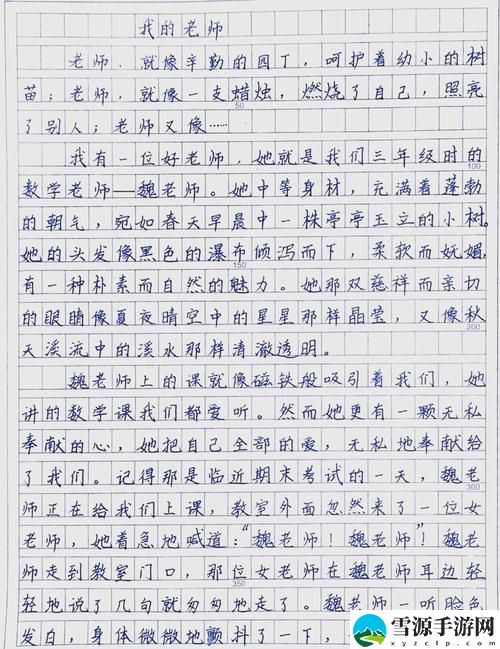 我的老师
老师，就像辛勤的园丁，呵护着幼小的树
苗；老师，就像一支蜡烛，燃烧了自己，照亮
50
了别人；老师又像……
我有一位好老师，她就是我们三年级时的
100
数学老师—魏老师。她中等身材，充满着蓬勃
的朝气，宛如春天早晨中一株亭亭玉立的小树。
她的头发像黑色的瀑布倾泻而下，柔软而妩媚，
150
有一种朴素而自然的魅力。她那双慈祥而亲切
的眼睛像夏夜晴空中的星星那样晶莹，又像秋
200
天溪流中的溪水那样清澈透明。
魏老师上的课就像磁铁般吸引着我们，她
讲的数学课我们都爱听。然而她更有一颗无私
奉献的心，她把自己全部的爱，无私地奉献给
了我们。记得那是临近期末考试的一天，魏老
300
师正在给我们上课，教室外面忽然来了一位女
老师，她着急地喊道：“魏老师！魏老师”！魏老
师走到教室门口，那位女老师在魏老师耳边轻
350
轻地说了几句就匆匆地走了。魏老师一听脸色
发白，身体微微地颤抖了一下，
雪源手游网
www.xyzclp.com